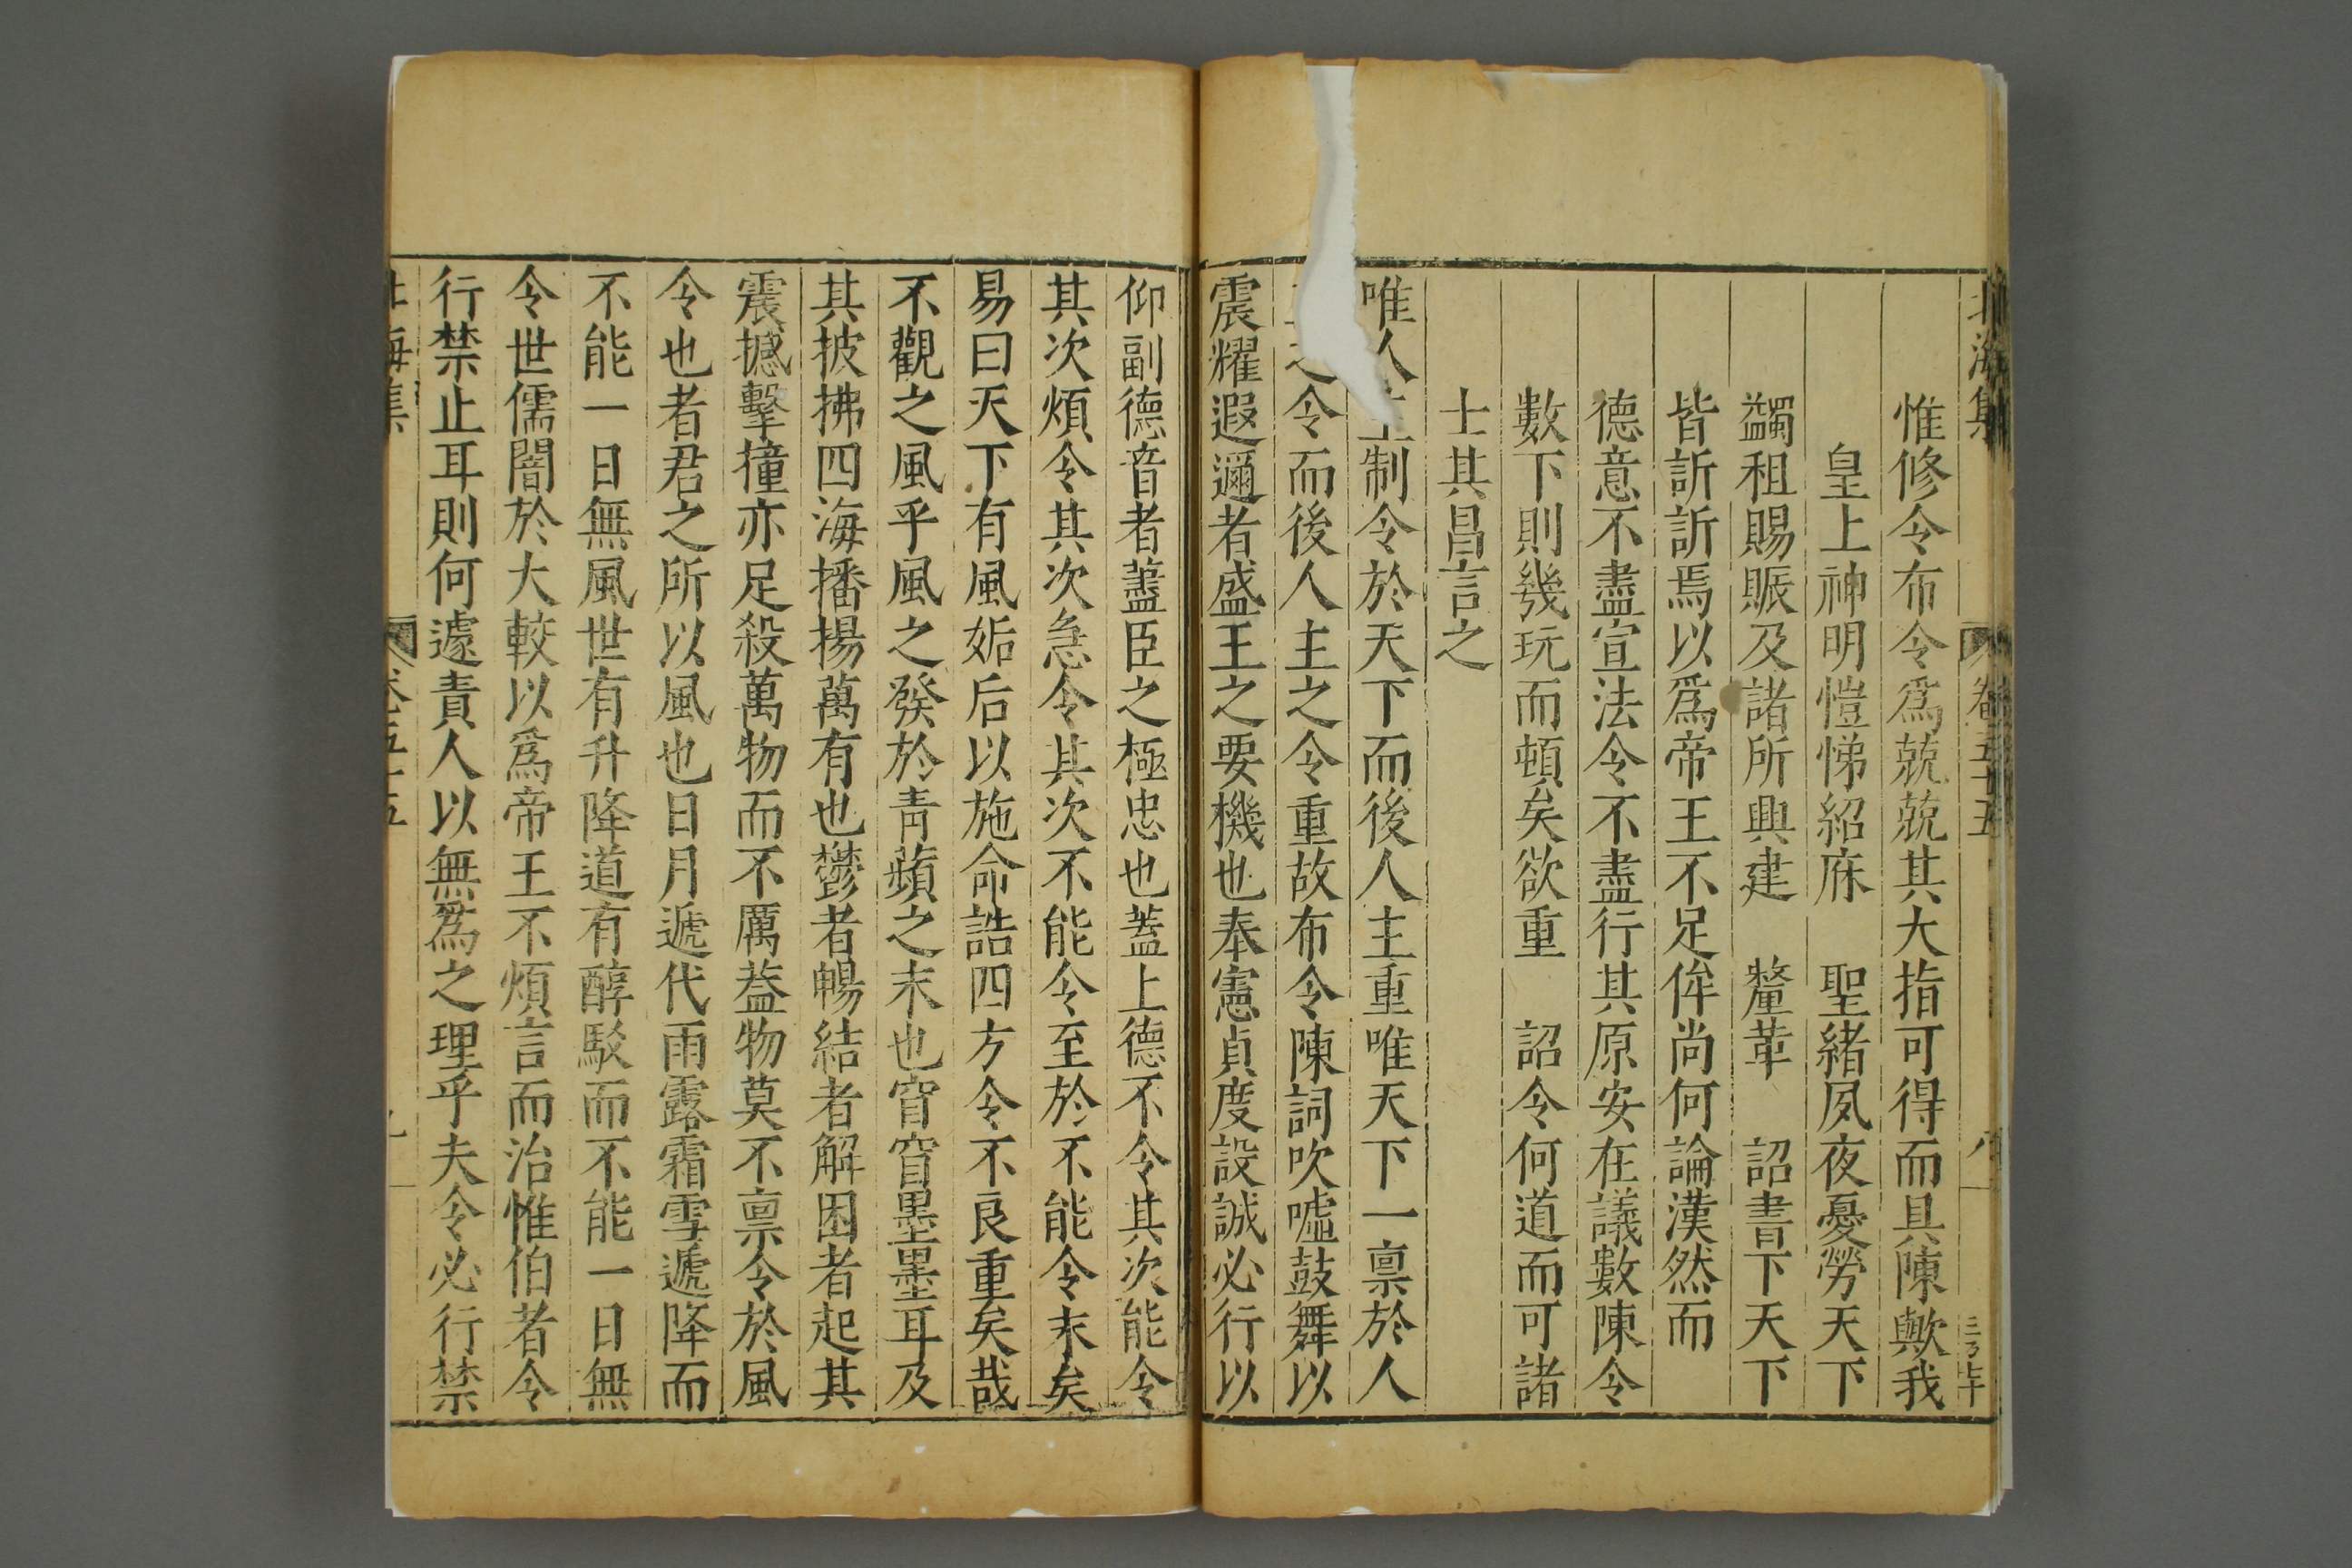 北海集 卷五十五 八
惟修令布令爲兢兢其大指可得而具陳歟我
皇上神明愷悌紹庥 聖緒夙夜憂勞天下
蠲租賜賑及諸所興建 釐革 詔書下天下
皆訢訢焉以爲帝王不足侔尚何論漢然而
德意不盡宣法令不盡行其原安在議數陳令
數下則幾玩而頓矣欲重 詔令何道而可諸
士其昌言之
唯人主制令於天下而後人主重唯天下一禀於人
之令而後人主之令重故布令陳詞吹噓鼓舞以
震耀遐邇者盛王之要機也奉憲貞度設誠必行以
仰副德音者藎臣之極忠也蓋上德不令其次能令
其次煩令其次急令其次不能令至於不能令末矣
易曰天下有風姤后以施命誥四方令不良重矣哉
不觀之風乎風之發於青蘋之末也窅窅墨墨耳及
其披拂四海播揚萬有也鬱者暢結者解困者起其
震撼擊撞亦足殺萬物而不厲葢物莫不禀令於風
令也者君之所以風也日月遞代雨露霜雪遞降而
不能一日無風世有升降道有醇駁而不能一日無
令世儒闇於大較以爲帝王不煩言而治惟伯者令
行禁止耳則何遽責人以無爲之理乎夫令必行禁
北海集 卷五十五